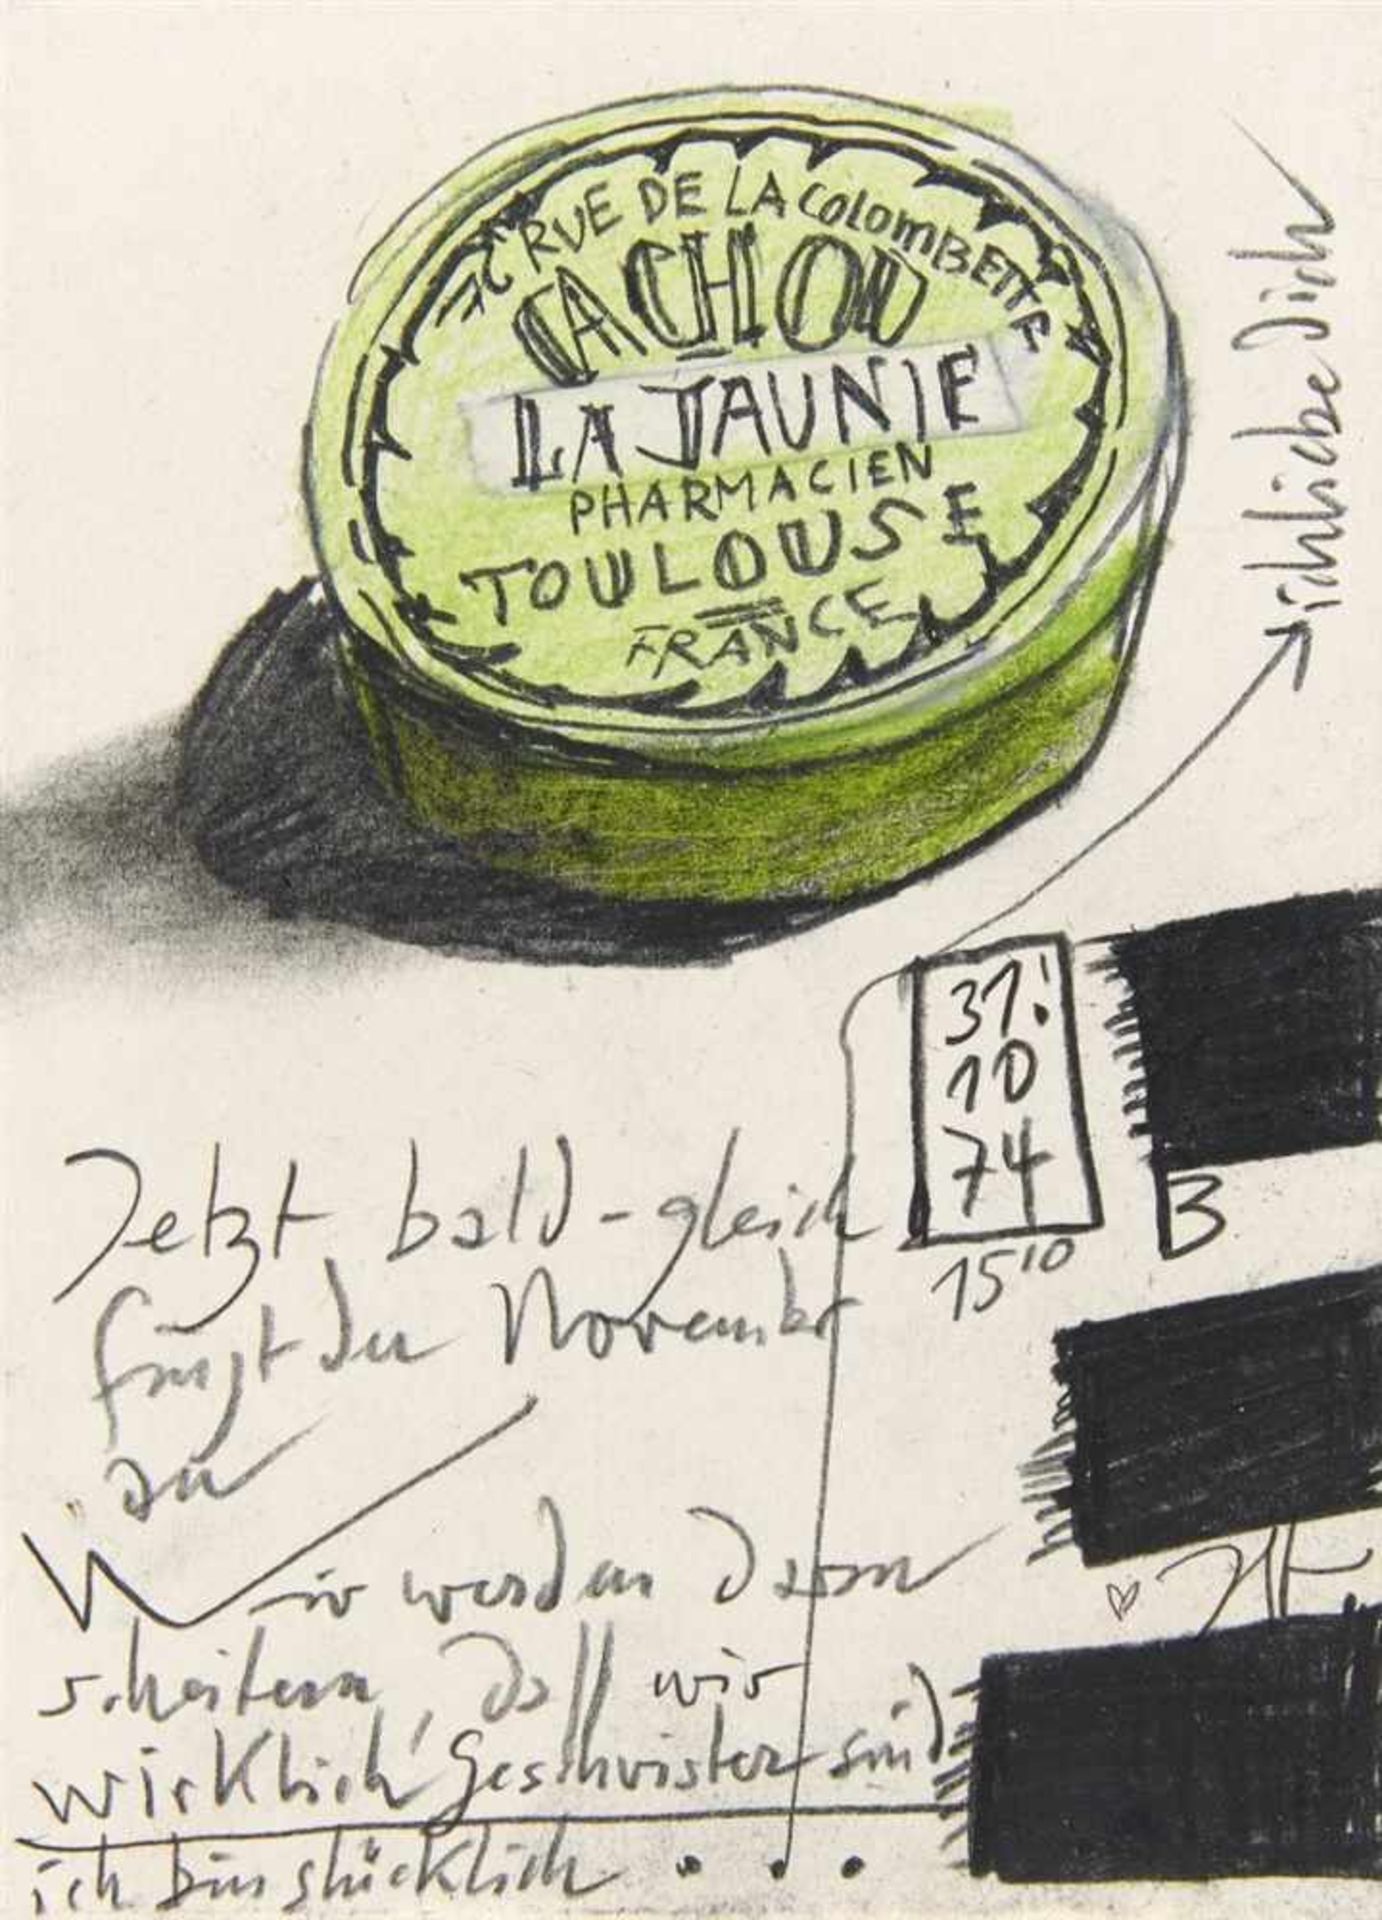 RUE DE LA COLOMBETTE
CACHOU
LA JAUNIE
PHARMACIEN
TOULOUSE
FRANCE
ich liebe Dich
31.
10
74
15 10
B
Jetzt bald-gleich
fängt der November
an
Wir werden daran
scheitern, daß wir
wirklich Geschwister sind
ich bin glücklich . . .